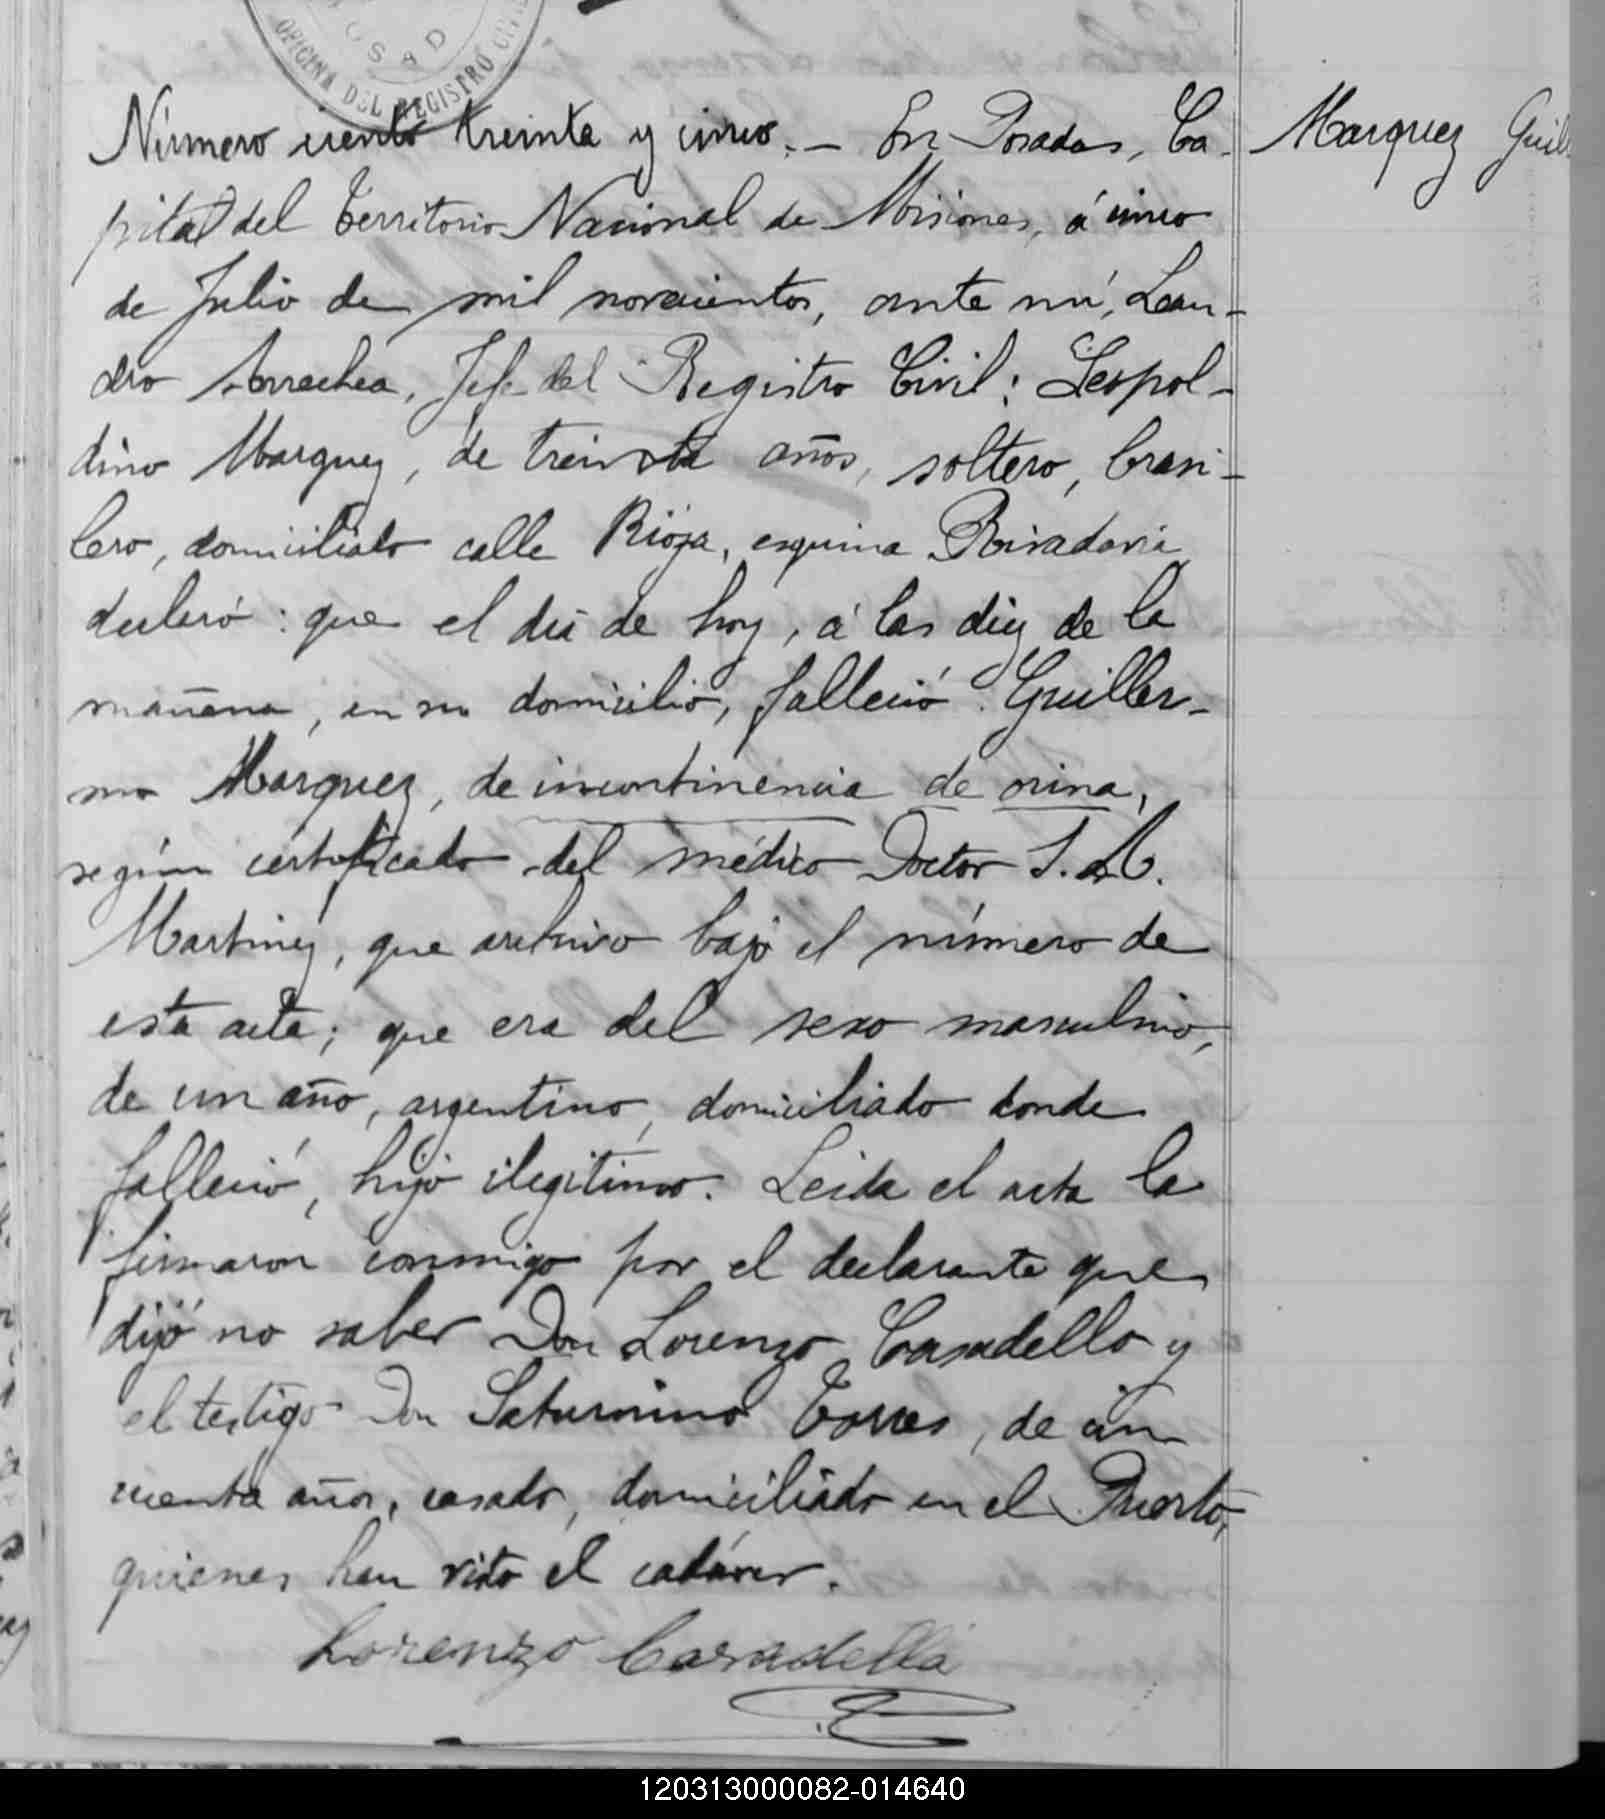 OFICINA DEL REGISTRO CIVIL
Número ciento treinta y cinco._ En Posadas, Ca-
Marquez Guil
pital del Territorio Nacional de Misiones, á cinco
de Julio de mil novecientos, ante mí, Lean-
dro Arrechea, Jefe del Registro Civil: Leopol-
dino Marquez, de treinta años, soltero, brasi-
lero, domiciliado calle Rioja, esquina Rivadavia
declaró: que el día de hoy, á las diez de la
mañana, en su domicilio, falleció Guiller-
mo Marquez, de incontinencia de orina,
según certificado del médico Doctor
Martinez, que archivo bajo el número de
esta acta; que era del sexo masculino,
de un año, argentino, domiciliado donde
falleció, hijo ilegítimo. Leida el acta la
firmaron conmigo por el declarante que
dijo no saber Don Lorenzo Casadello y
el testigo Don Saturnino Torres, de cin
cuenta años, casado, domiciliado en el Puerto,
quienes han visto el cadáver.
Lorenzo Casadella
120313000082-014640